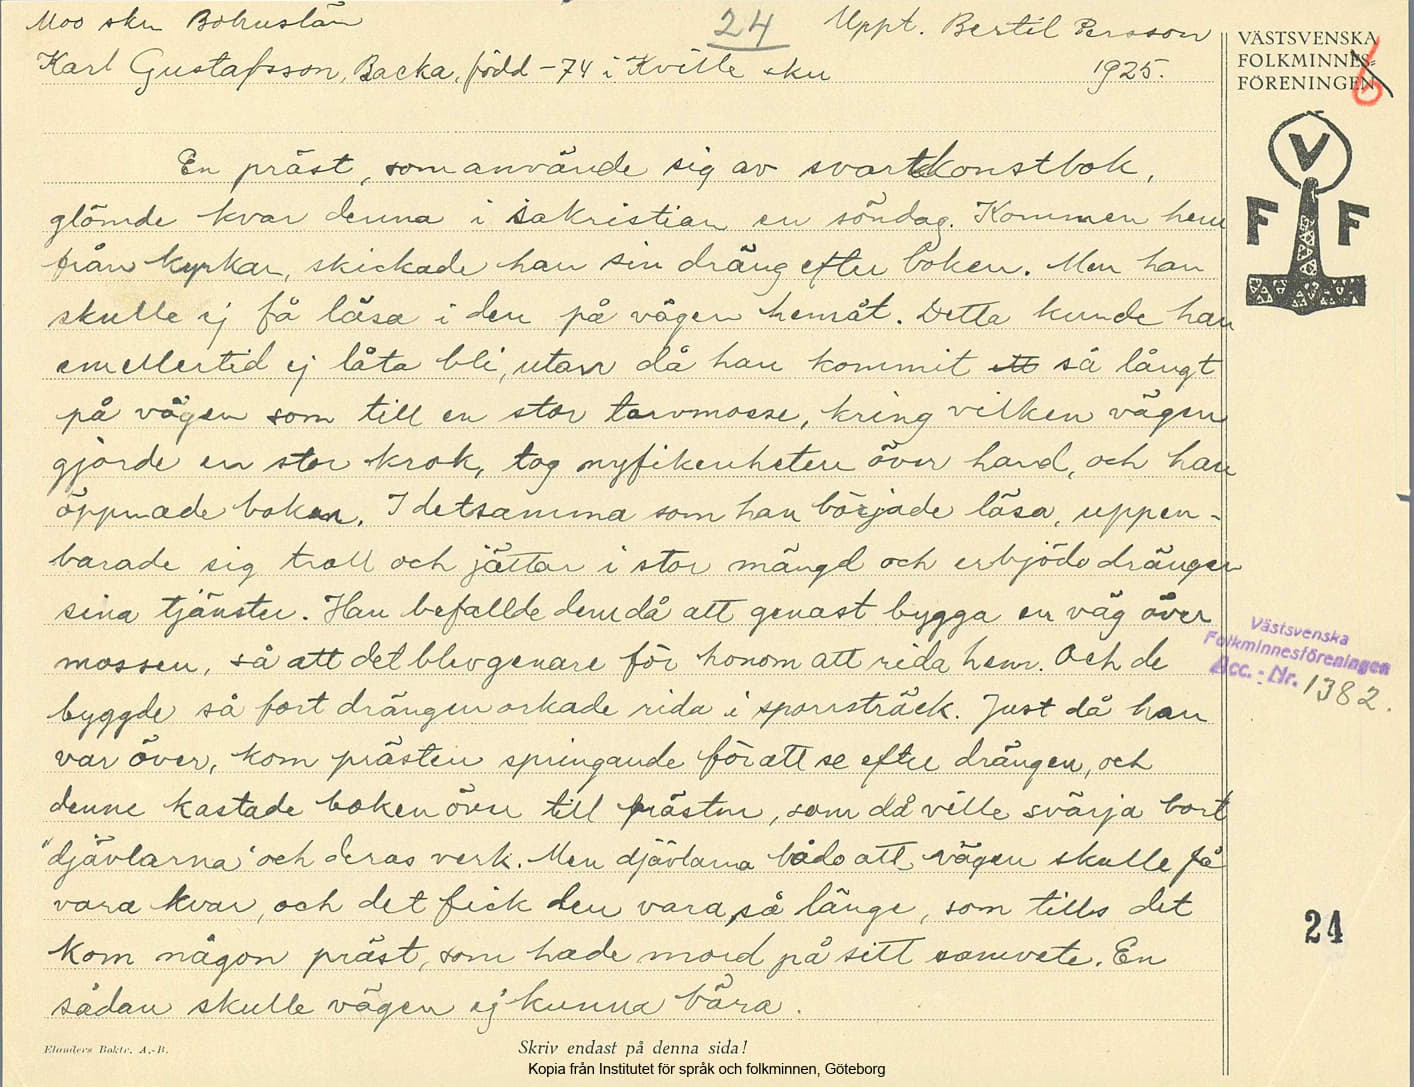 Moo skn Bohuslän
24
Uppt. Bertil Persson
Karl Gustafsson, Backa, född -74 i Kville skn
1925.
VÄSTSVENSKA
FOLKMINNES-
FÖRENINGEN
6
V
F F
En präst, som använde sig av svartkonstbok,
glömde kvar denna i sakristian en söndag. Kommen hem
från kyrkan, skickade han sin dräng efter boken. Men han
skulle ej få läsa i den på vägen hemåt. Detta kunde han
emellertid ej låta bli, utan då han kommit ett så långt
på vägen som till en stor torvmosse, kring vilken vägen
gjorde en stor krok, tog nyfikenheten över hand, och han
öppnade boken. I detsamma som han började läsa, uppen-
barade sig troll och jättar i stor mängd och erbjödo drängen
sina tjänster. Han befallde dem då att genast bygga en väg över
mossen, så att det blev genare för honom att rida hem. Och de
byggde så fort drängen orkade rida i sporrsträck. Just då han
var över, kom prästen springande för att se efter drängen, och
denne kastade boken över till prästen, som då ville svärja bort
"djävlarna" och deras verk. Men djävlarna bådo att vägen skulle få
vara kvar, och det fick den vara, så länge, som tills det
kom någon präst, som hade mord på sitt samvete. En
sådan skulle vägen ej kunna bära.
Västsvenska
Folkminnesföreningen
Acc. - Nr. 1382.
24
Elanders Boktr. A.-B.
Skriv endast på denna sida!
Kopia från Institutet för språk och folkminnen, Göteborg